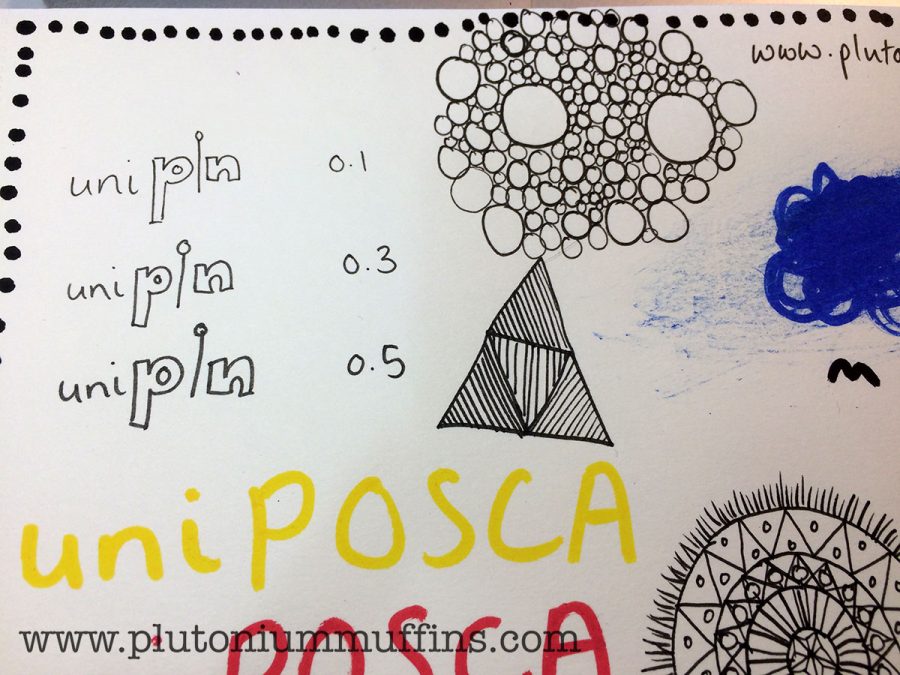 www.pluto
uni pin 0.1
uni pin 0.3
uni pin 0.5
m
uni POSCA
POSCA
www.plutoniummuffins.com